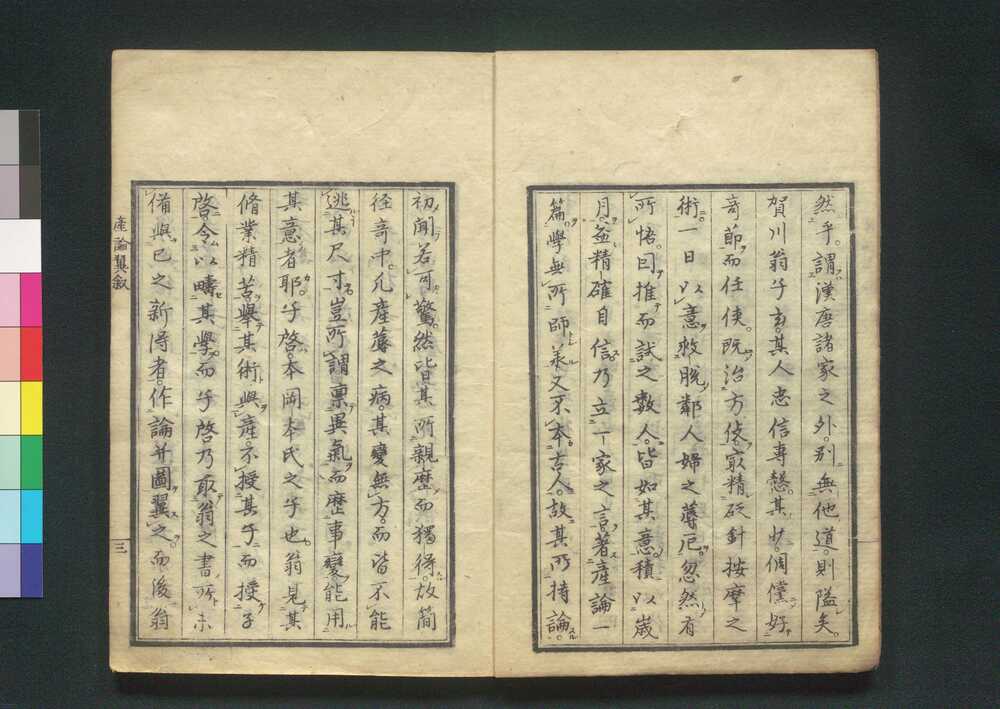 然乎。謂漢唐諸家之外。別無他道。則隘矣。
賀川翁子玄。其人忠信專愨。其少倜儻好
奇節。而任俠。既治方伎。寂精砭針按摩之
術。一日以意救脫鄰人婦之蓐厄。忽然有
所悟。因推而試之數人。皆如其意。積以歲
月。益精確自信。乃立一家之言。著產論一
篇。學無所師承。又不本古人。故其所持論。
初聞若可驚。然皆其所親歷而獨得。故簡
徑奇中。凡產蓐之病。其變無方。而皆不能
逃其尺寸。豈所謂稟異氣而歷事變。能用
其意者耶。子啓。本岡本氏之子也。翁見其
脩業精苦。舉其術與產。不授其子而授子
啓。令以疇其學。而子啓乃取翁之書所未
備與已之新得者。作論并圖翼之。而後翁
產論翼叙
三